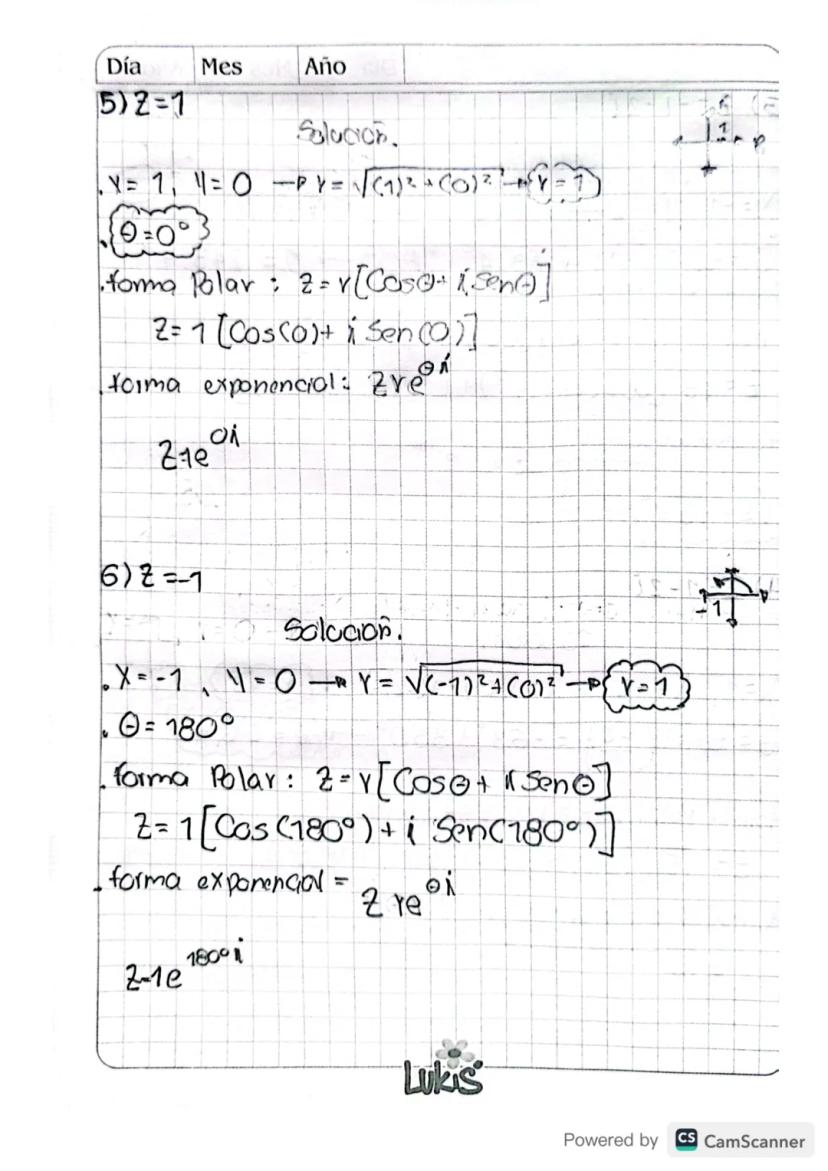 Día Mes Año
5) Z=1
Solución.
. X= 1, Y=0 → r= √(1)²+(0)² → r=1
. θ=0°
. forma Polar : Z=r[Cosθ+ i Senθ]
Z=1[Cos(0)+ i Sen(0)]
. forma exponencial: Z re^θi
Z=1e^0i
6) Z=-1
-1
Solución.
. X=-1, Y=0 → r= √(-1)²+(0)² → r=1
. θ= 180°
. forma Polar: Z=r[Cosθ+ i Senθ]
Z=1[Cos(180°)+ i Sen(180°)]
. forma exponencial = Z re^θi
Z=1e^180°i
Lukis
Powered by CS CamScanner